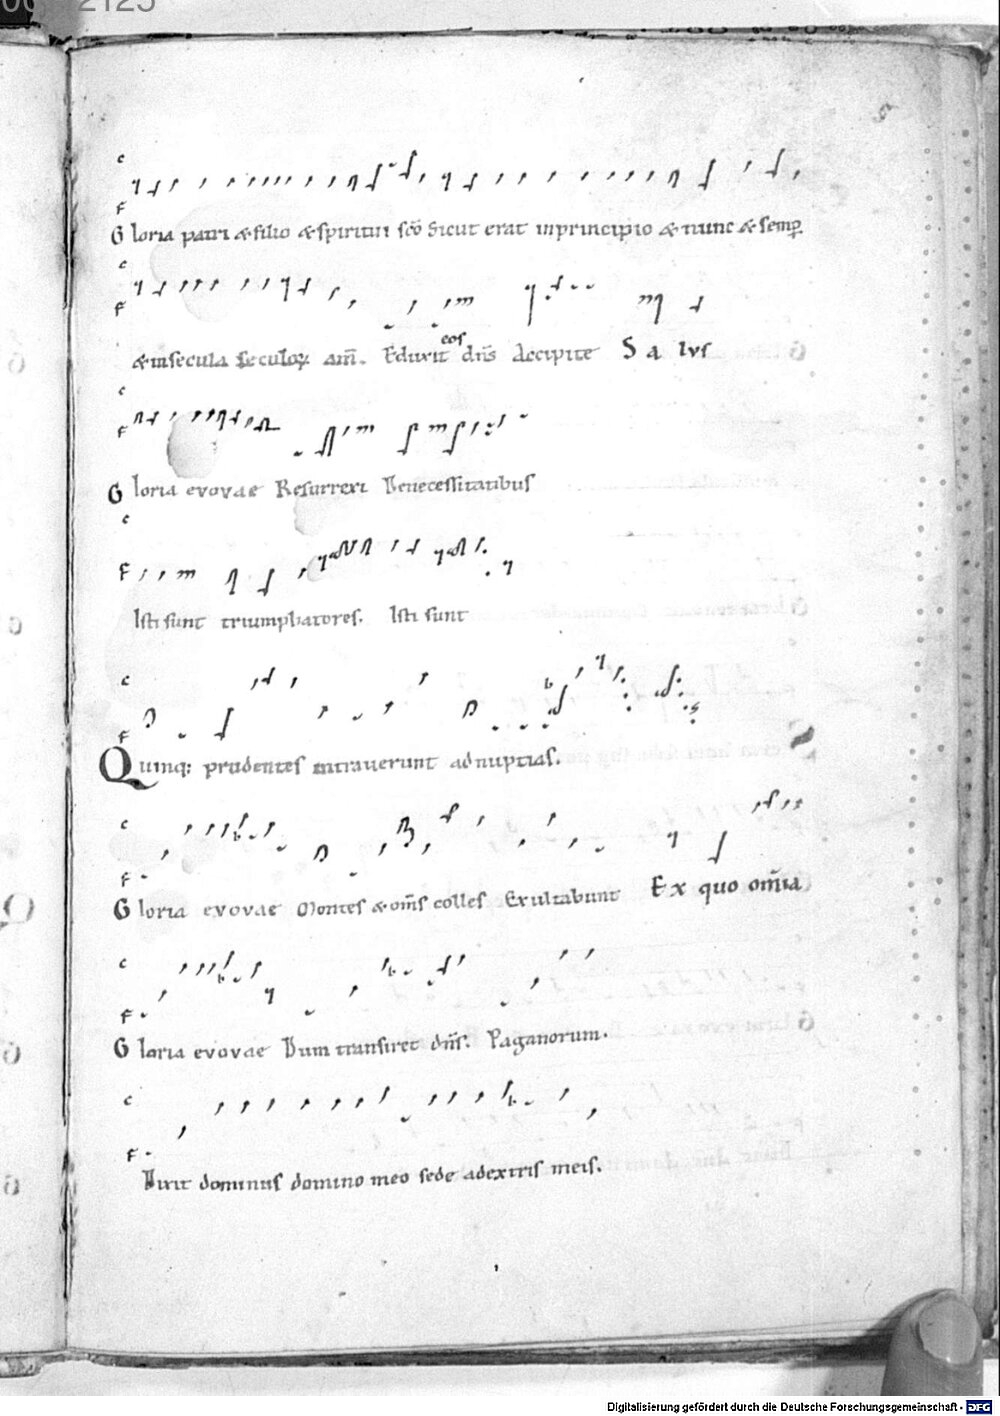 c
F
Gloria patri & filio & spiritui sc̄o Sicut erat inprincipio & nunc & semp̱
c
F
& insecula seculoꝝ am̄. Eduxit eos dn̄s Accipite Salus
c
F
Gloria evovae Resurrexi Denecessitatibus
c
F
Isti sunt triumphatores. Isti sunt
c
F
Quinq: prudentes intraverunt adnuptias.
c
F
Gloria evovae Montes & om̄s colles Exultabunt Ex quo om̄ia
c
F
Gloria evovae Dum transiret dn̄s. Paganorum.
c
F
Dixit dominus domino meo sede adextris meis.
Digitalisierung gefördert durch die Deutsche Forschungsgemeinschaft - DFG